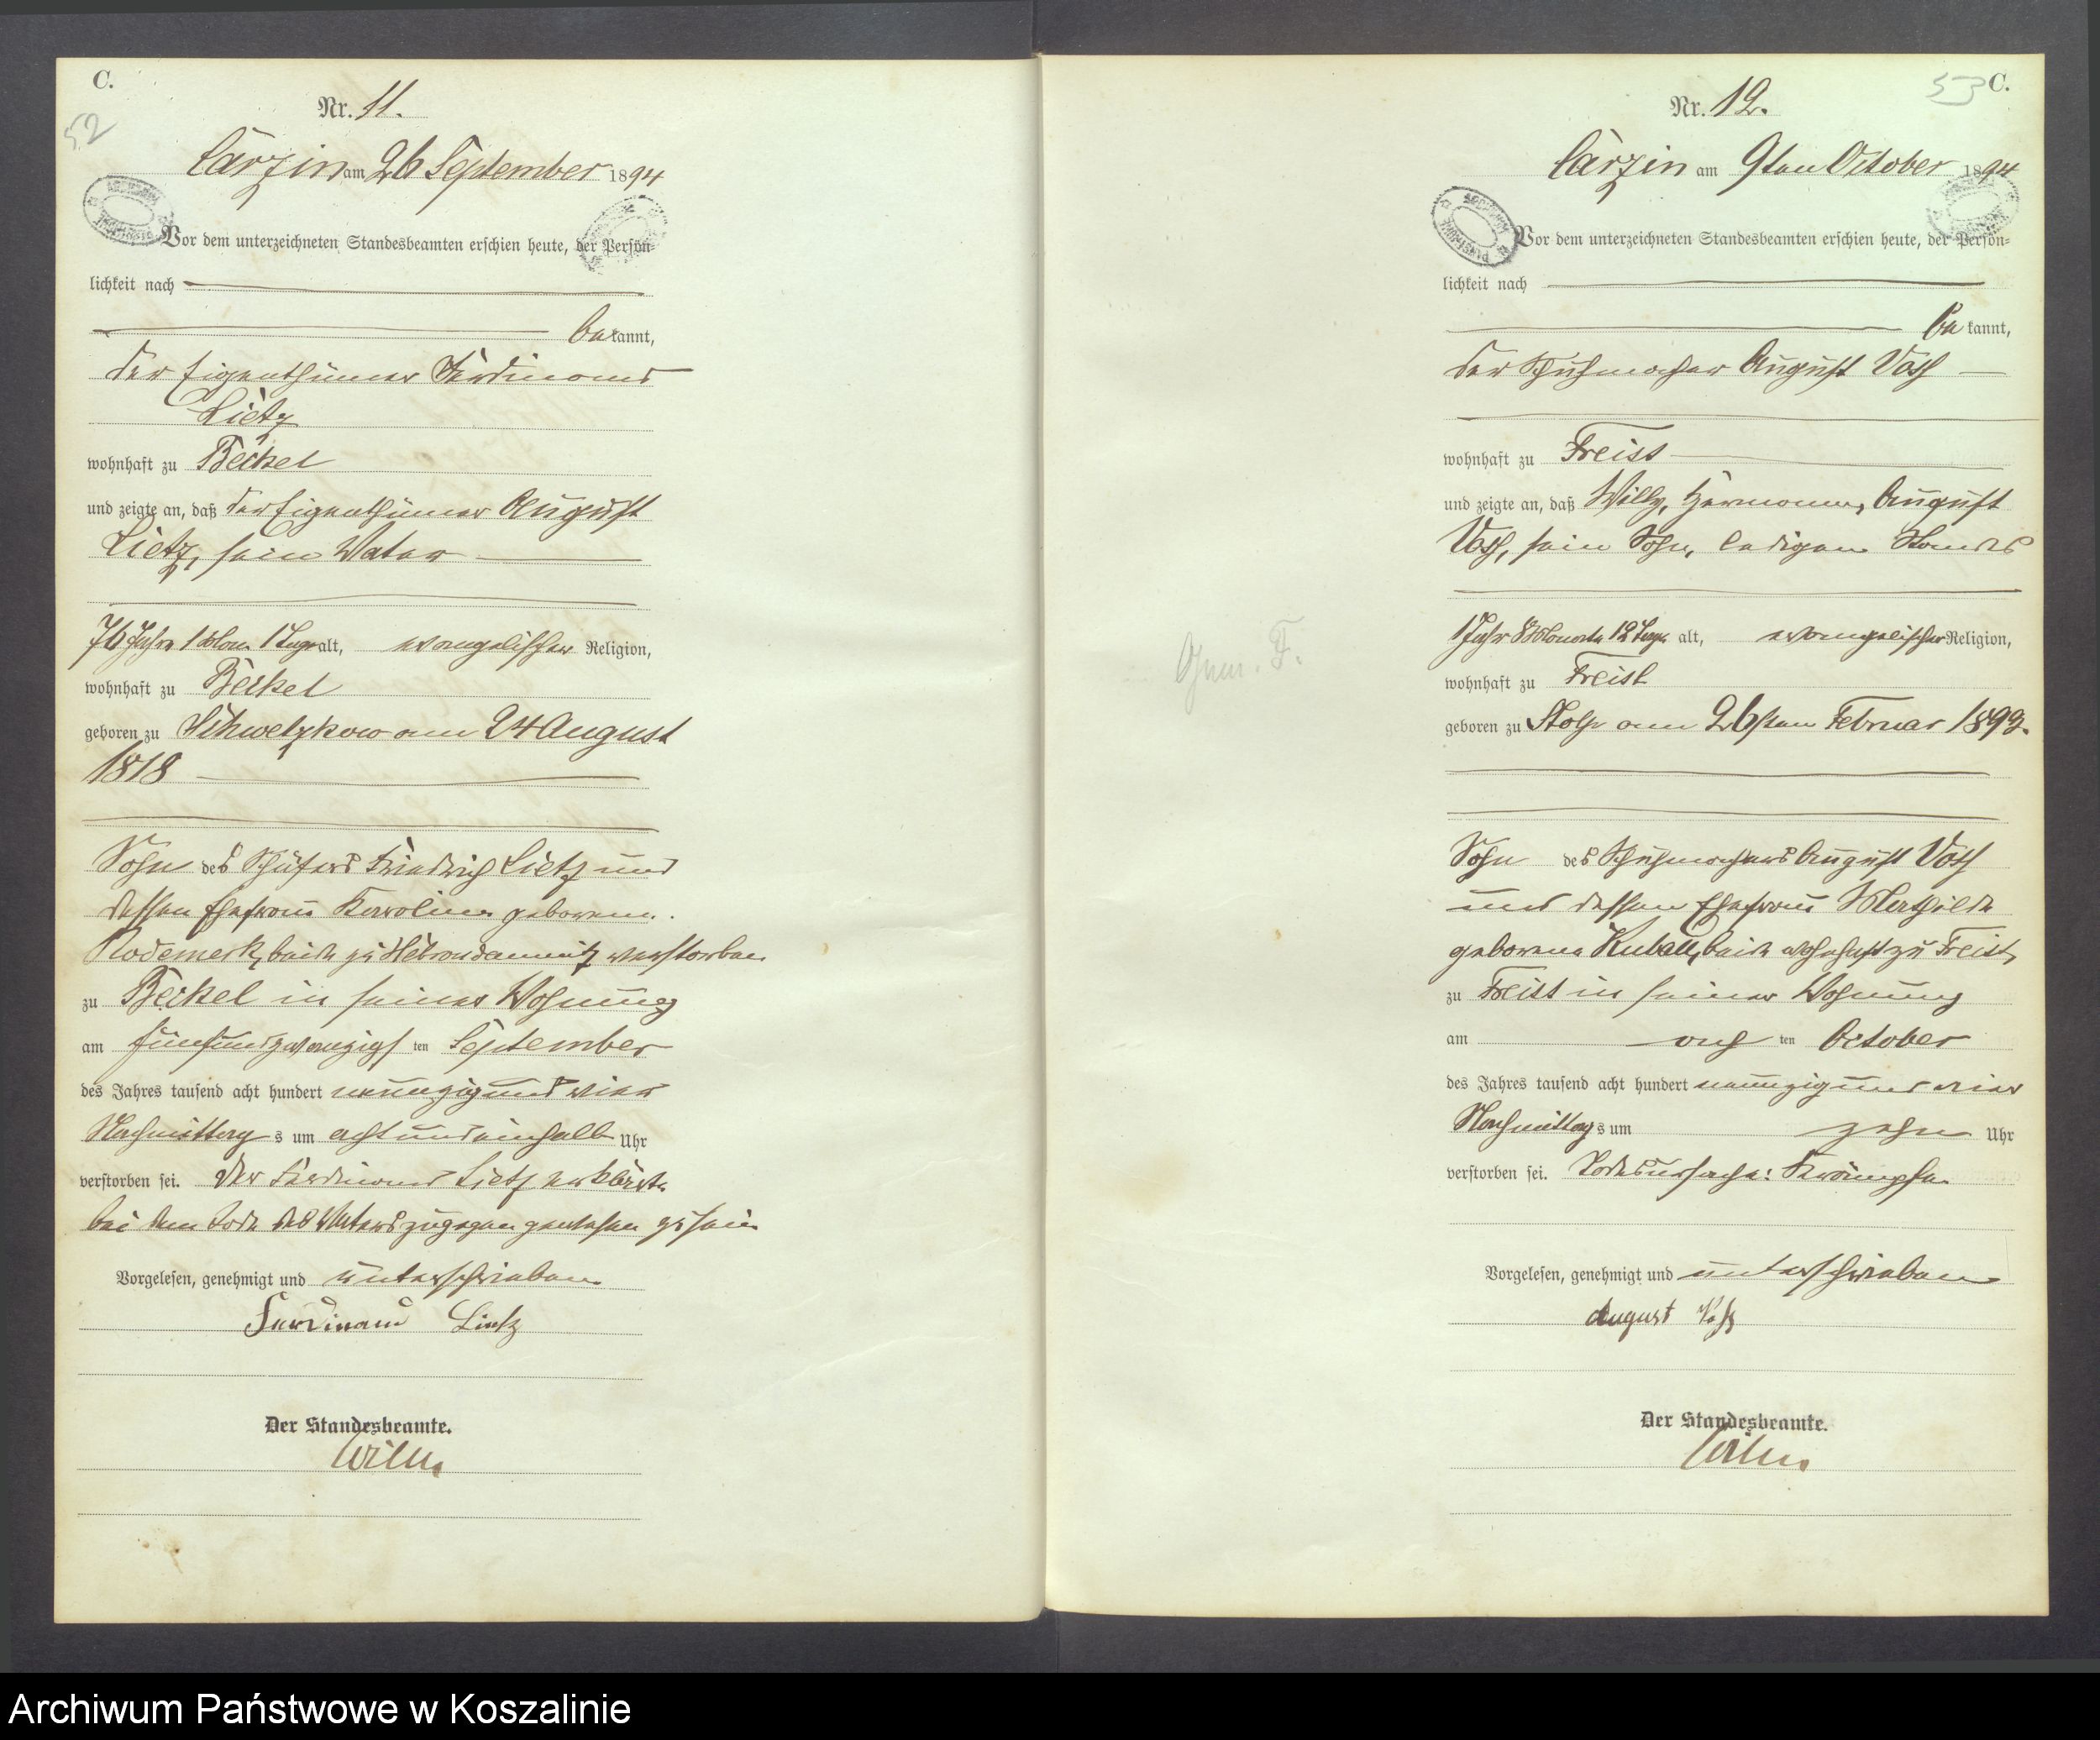 C.
52
Nr. 11.
Carzin am 26 September 1894
Vor dem unterzeichneten Standesbeamten erschien heute, der Persön-
lichkeit nach
bekannt,
der Eigenthümer Ferdinand
Lietz
wohnhaft zu Beckel
und zeigte an, daß der Eigenthümer August
Lietz, sein Vater
76 Jahre 1 Mon. 1 Tage alt, evangelischer Religion,
wohnhaft zu Beckel
geboren zu Schwetzkow am 24 August
1818
Sohn des Schäfers Friedrich Lietz und
dessen Ehefrau Karoline geborene
Rodemerk, beide zu Hebrondamnitz verstorben
zu Beckel in seiner Wohnung
am fünfundzwanzigs ten September
des Jahres tausend acht hundert neunzig und vier
Nachmittag s um acht und einhalb Uhr
verstorben sei. Der Ferdinand Lietz erklärte
bei dem Tode des Vaters zugegen gewesen zu sein
Vorgelesen, genehmigt und unterschrieben
Ferdinand Lietz
Der Standesbeamte.
53
C.
Nr. 12.
Carzin am 9ten October 1894
Vor dem unterzeichneten Standesbeamten erschien heute, der Persön-
lichkeit nach
bekannt,
der Schuhmacher August Voss
wohnhaft zu Freist
und zeigte an, daß Willy, Hermann, August
Voss, sein Sohn, ledigen Standes
1 Jahr 8 Monate 12 Tage alt, evangelischer Religion,
wohnhaft zu Freist
geboren zu Stolp am 26sten Februar 1893.
Sohn des Schuhmachers August Voss
und dessen Ehefrau Mathilde
geborene Kuball, beide wohnhaft zu Freist,
zu Freist in seiner Wohnung
am ach ten October
des Jahres tausend acht hundert neunzig und vier
Nachmittag s um zehn Uhr
verstorben sei. Todesursache: Krämpfe.
Vorgelesen, genehmigt und unterschrieben
August Voß
Der Standesbeamte.
Archiwum Państwowe w Koszalinie